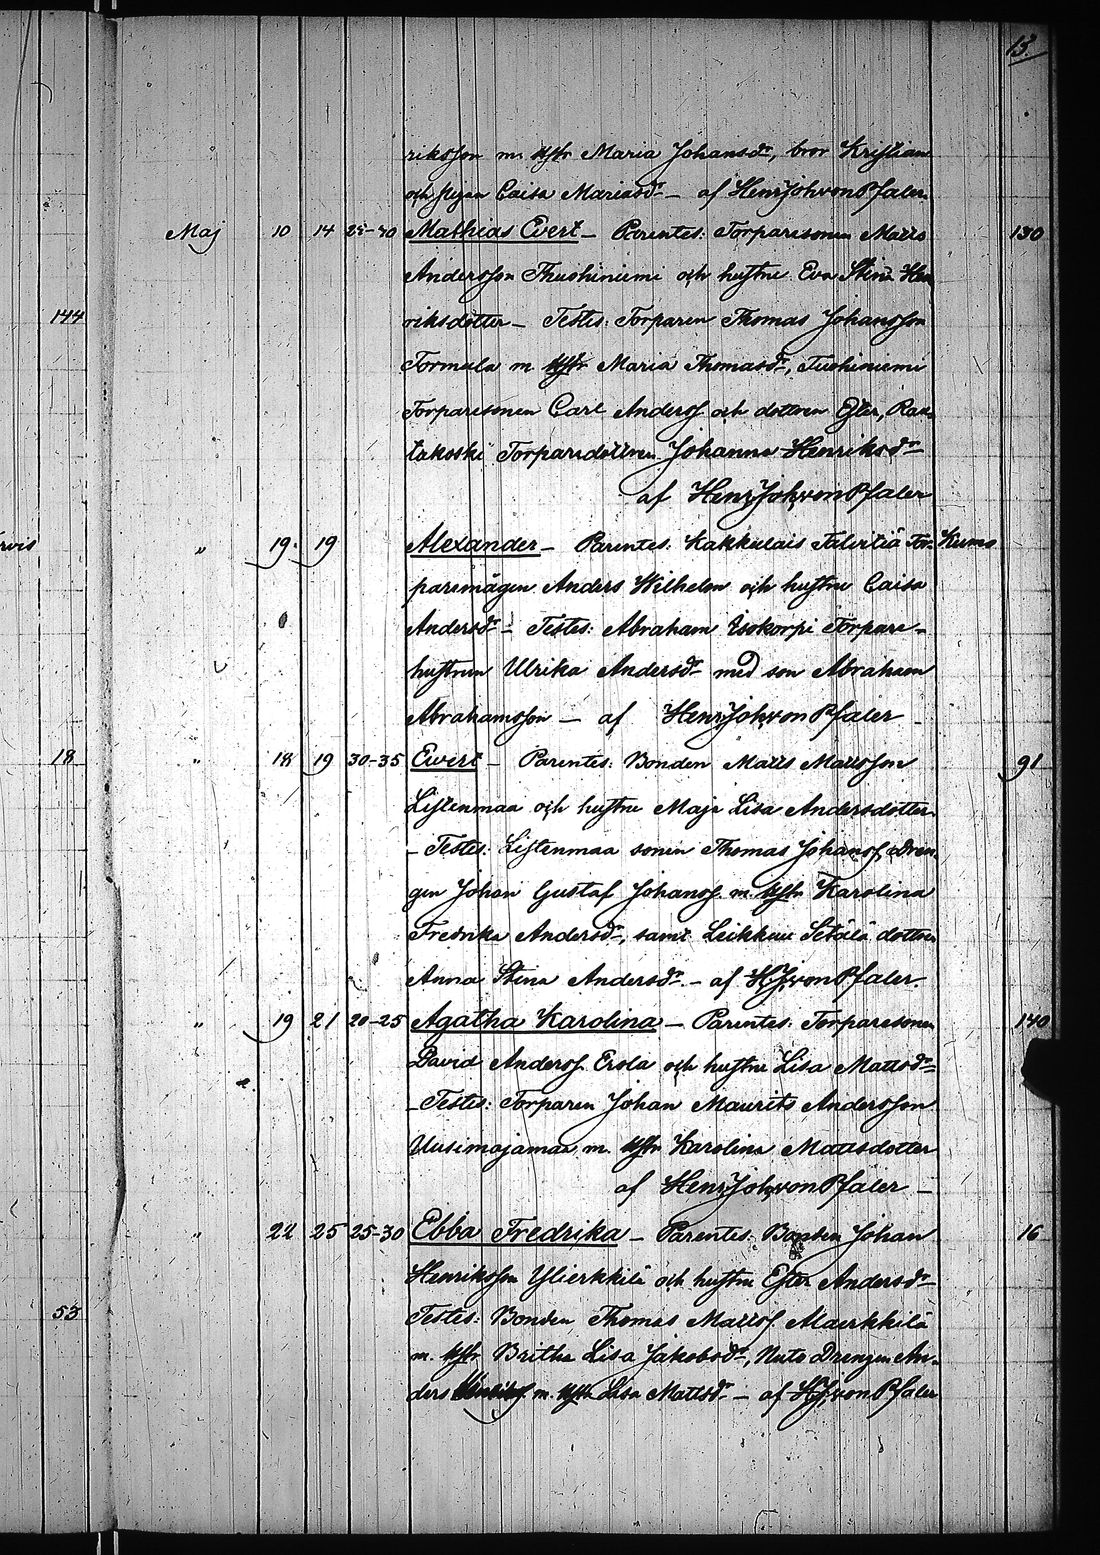 13.
riksson m. hstr Maria Johansdr, bror Kristian
och pigan Caisa Mariasdr — af Henr Joh von Pfaler
Maj 10 14 25-30 Mathias Evert — Parentes: Torparesonen Matts 130
Andersson Thuohiniemi och hustru Eva Stina Hen
144 riksdotter — Testes: Torparen Thomas Johansson
Tormula m. hstr Maria Thomasdr, Tuohiniemi
Torparesonen Carl Anderss. och dottren Ester, Rau-
takoski Torparedottren Johanna Henriksdr
af Henr Joh von Pfaler
" 19. 19 Alexander — Parentes: Kakkulais Torp- Kumo
paremågen Anders Wilhelm och hustru Caisa
Andersdr — Testes: Abraham Isokorpi Torpare-
hustrun Ulrika Andersdr med son Abraham
Abrahamsson — af Henr Joh von Pfaler —
18 " 18 19 30-35 Ewert — Parentes: Bonden Matts Mattsson 91
Listenmaa och hustru Maja Lisa Andersdotter
— Testes: Listenmaa sonen Thomas Johanss, Dren-
gen Johan Gustaf Johanss. m. hstr Karolina
Fredrika Andersdr, samt Leikkuu Setälä dottren
Anna Stina Andersdr. — af HJ von Pfaler.
" 19 21 20-25 Agatha Karolina — Parentes: Torparesonen 140
David Anderss. Erola och hustru Lisa Mattsdr
— Testes: Torparen Johan Maurits Andersson
Uusimajamaa m. hstr Karolina Mattsdotter
af Henr Joh von Pfaler —
" 22 25 25-30 Ebba Fredrika — Parentes: Bonden Johan 16
Henriksson Ylierkkilä och hustru Ester Andersdr —
53 Testes: Bonden Thomas Matts. Alaerkkilä
m. hstr Britha Lisa Jakobsdr, Drengen An-
ders m. hstr Lisa Mattsdr — af HJ von Pfaler